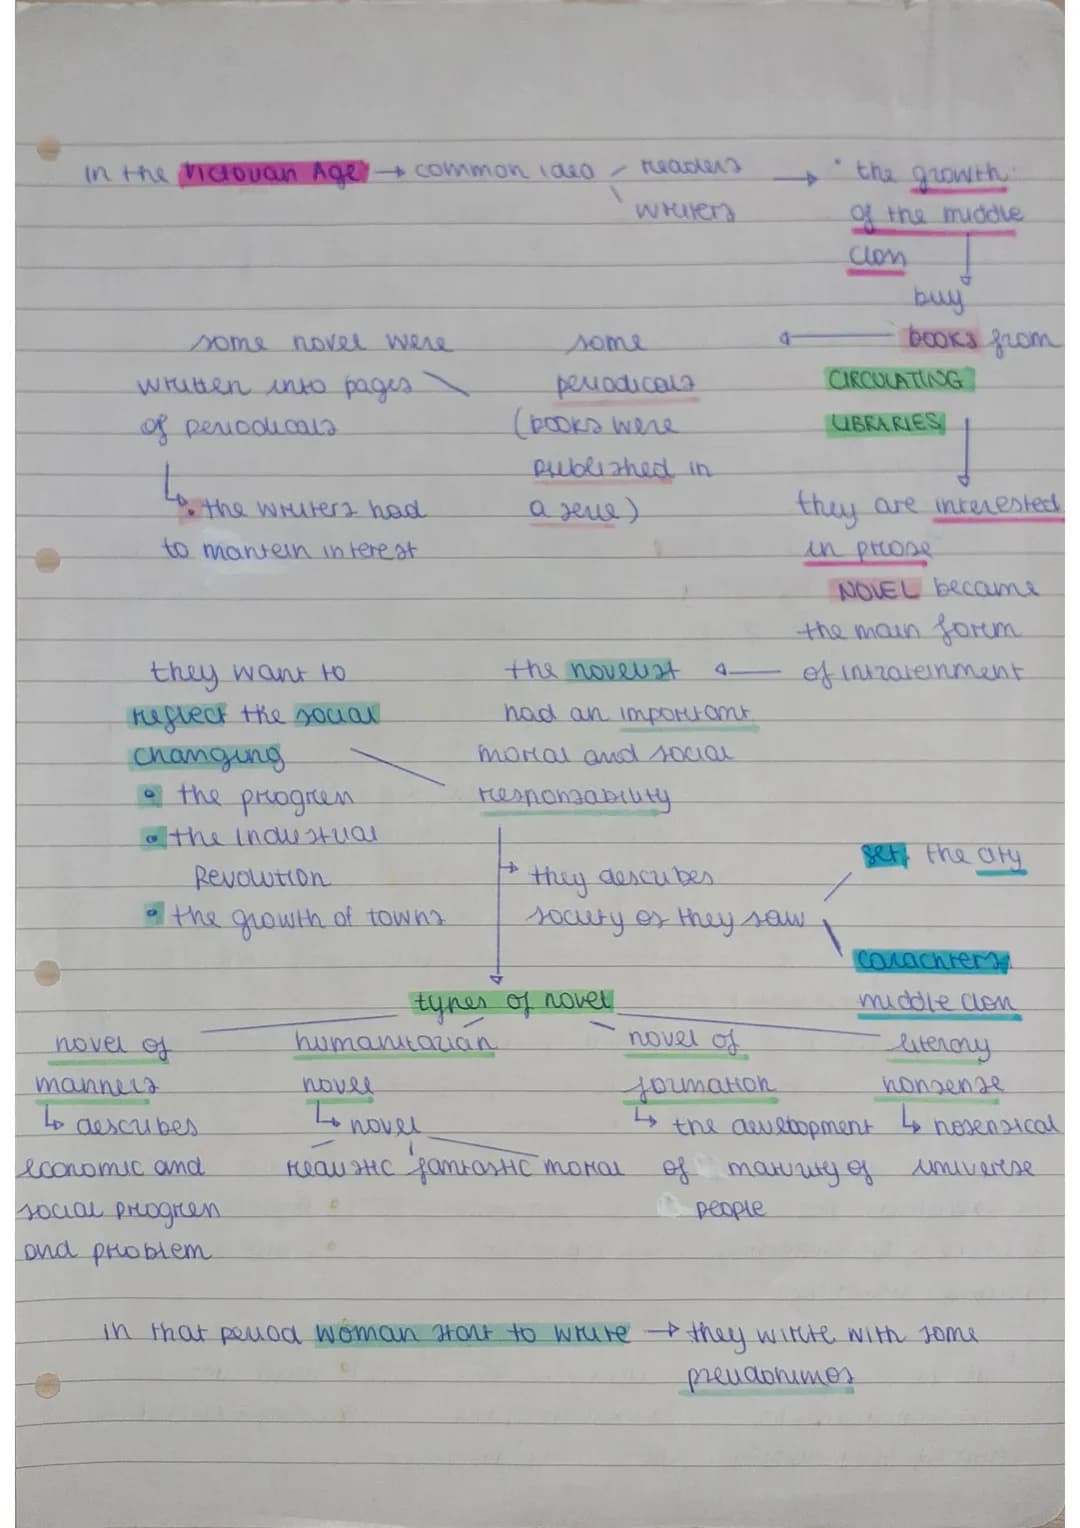 in the Victorian Age → common idea readers → • the growth
writers of the middle
class
buy
some novel were some ← books from
written into pages periodicals CIRCULATING
of periodicals (books were LIBRARIES
published in
↳ • the writers had a serie) they are interested
to mantein interest in prose
NOVEL became
the main form
they want to the novelist ← of intrateinment
reflect the social had an important
changing moral and social
• the progress responsability
• the industrual
Revolution ↳ they describes set, the city
• the growth of towns society as they saw
carachters
types of novel middle class
novel of humanitarian novel of literary
manners novel formation nonsense
↳ describes ↳ novel ↳ the development ↳ nosensical
economic and realistic fantastic moral of maturity of universe
social progress people
and problem
in that period woman start to write → they write with some
pseudonimos